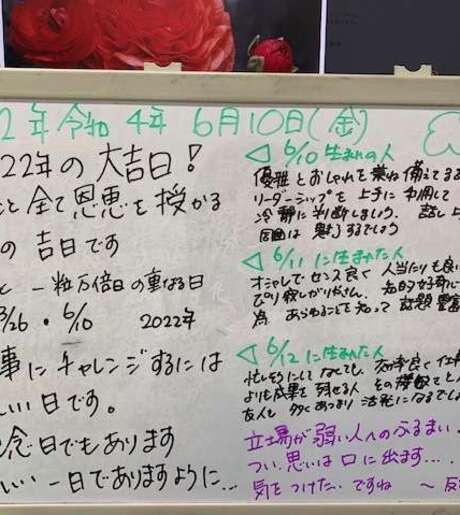 2年 令和 4年 6月10日(金)
022年の 大吉日!
と 全て 恩恵を 授かる
の 吉日です
と 一粒万倍日の重なる日
3/26 ・ 6/10 2022年
事に チャレンジするには
しい 日です。
念日でもあります
いい 一日でありますように...
6/10 生まれの人
優雅とおしゃれを兼ね備えてる
リーダーシップを 上手に 利用して
冷静に判断しましょう. 話し上
周囲は 魅了するでしょう
6/11 に生まれた人
オシャレでセンス良く 人当たりも良い
ぴり寂しがりやさん. 知的好奇心
為 あらゆることを知って 話題豊富
6/12 に生まれた人
忙しそうにしてなくても, 効率良く仕
よりも成果を 残せる人 その
友人も 多くあつまり 活発になるでし
立場が弱い人へのふるまい。
つい, 思いは 口に 出ます....
気をつけた.. ですね ~ 反